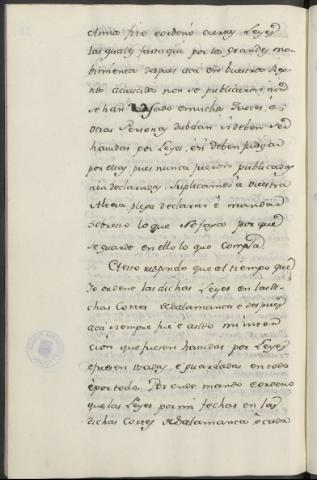 Anno fizo e ordenó ciertas Leyes
las quales fasta qui por los grandes mo-
bimientos despues acá en vuestros Regnos
acaescidos non se publicaron, nin
se han usado en mucha Jueces, e
otras Personas dubdan si deben ser
havidas por Leyes, e si deben judgar
por ellas, pues nunca fueron publicadas
nin declaradas, suplicamos a vuestra
Alteza plega declarar e mandar
sobre esto lo que se faga porque
se guarde en ello lo que cumpla
A esto respondo que el tiempo que
Yo ordené las dichas Leyes en las di-
chas Cortes de Salamanca e despues
acá siempre fue e a sido mi inten-
cion que fuesen havidas por Leyes
e fuesen usadas, e guardadas en todo
e por todo, Por ende mando e ordeno
que las Leyes por mi fechas en las
dichas Cortes de Salamanca e cada